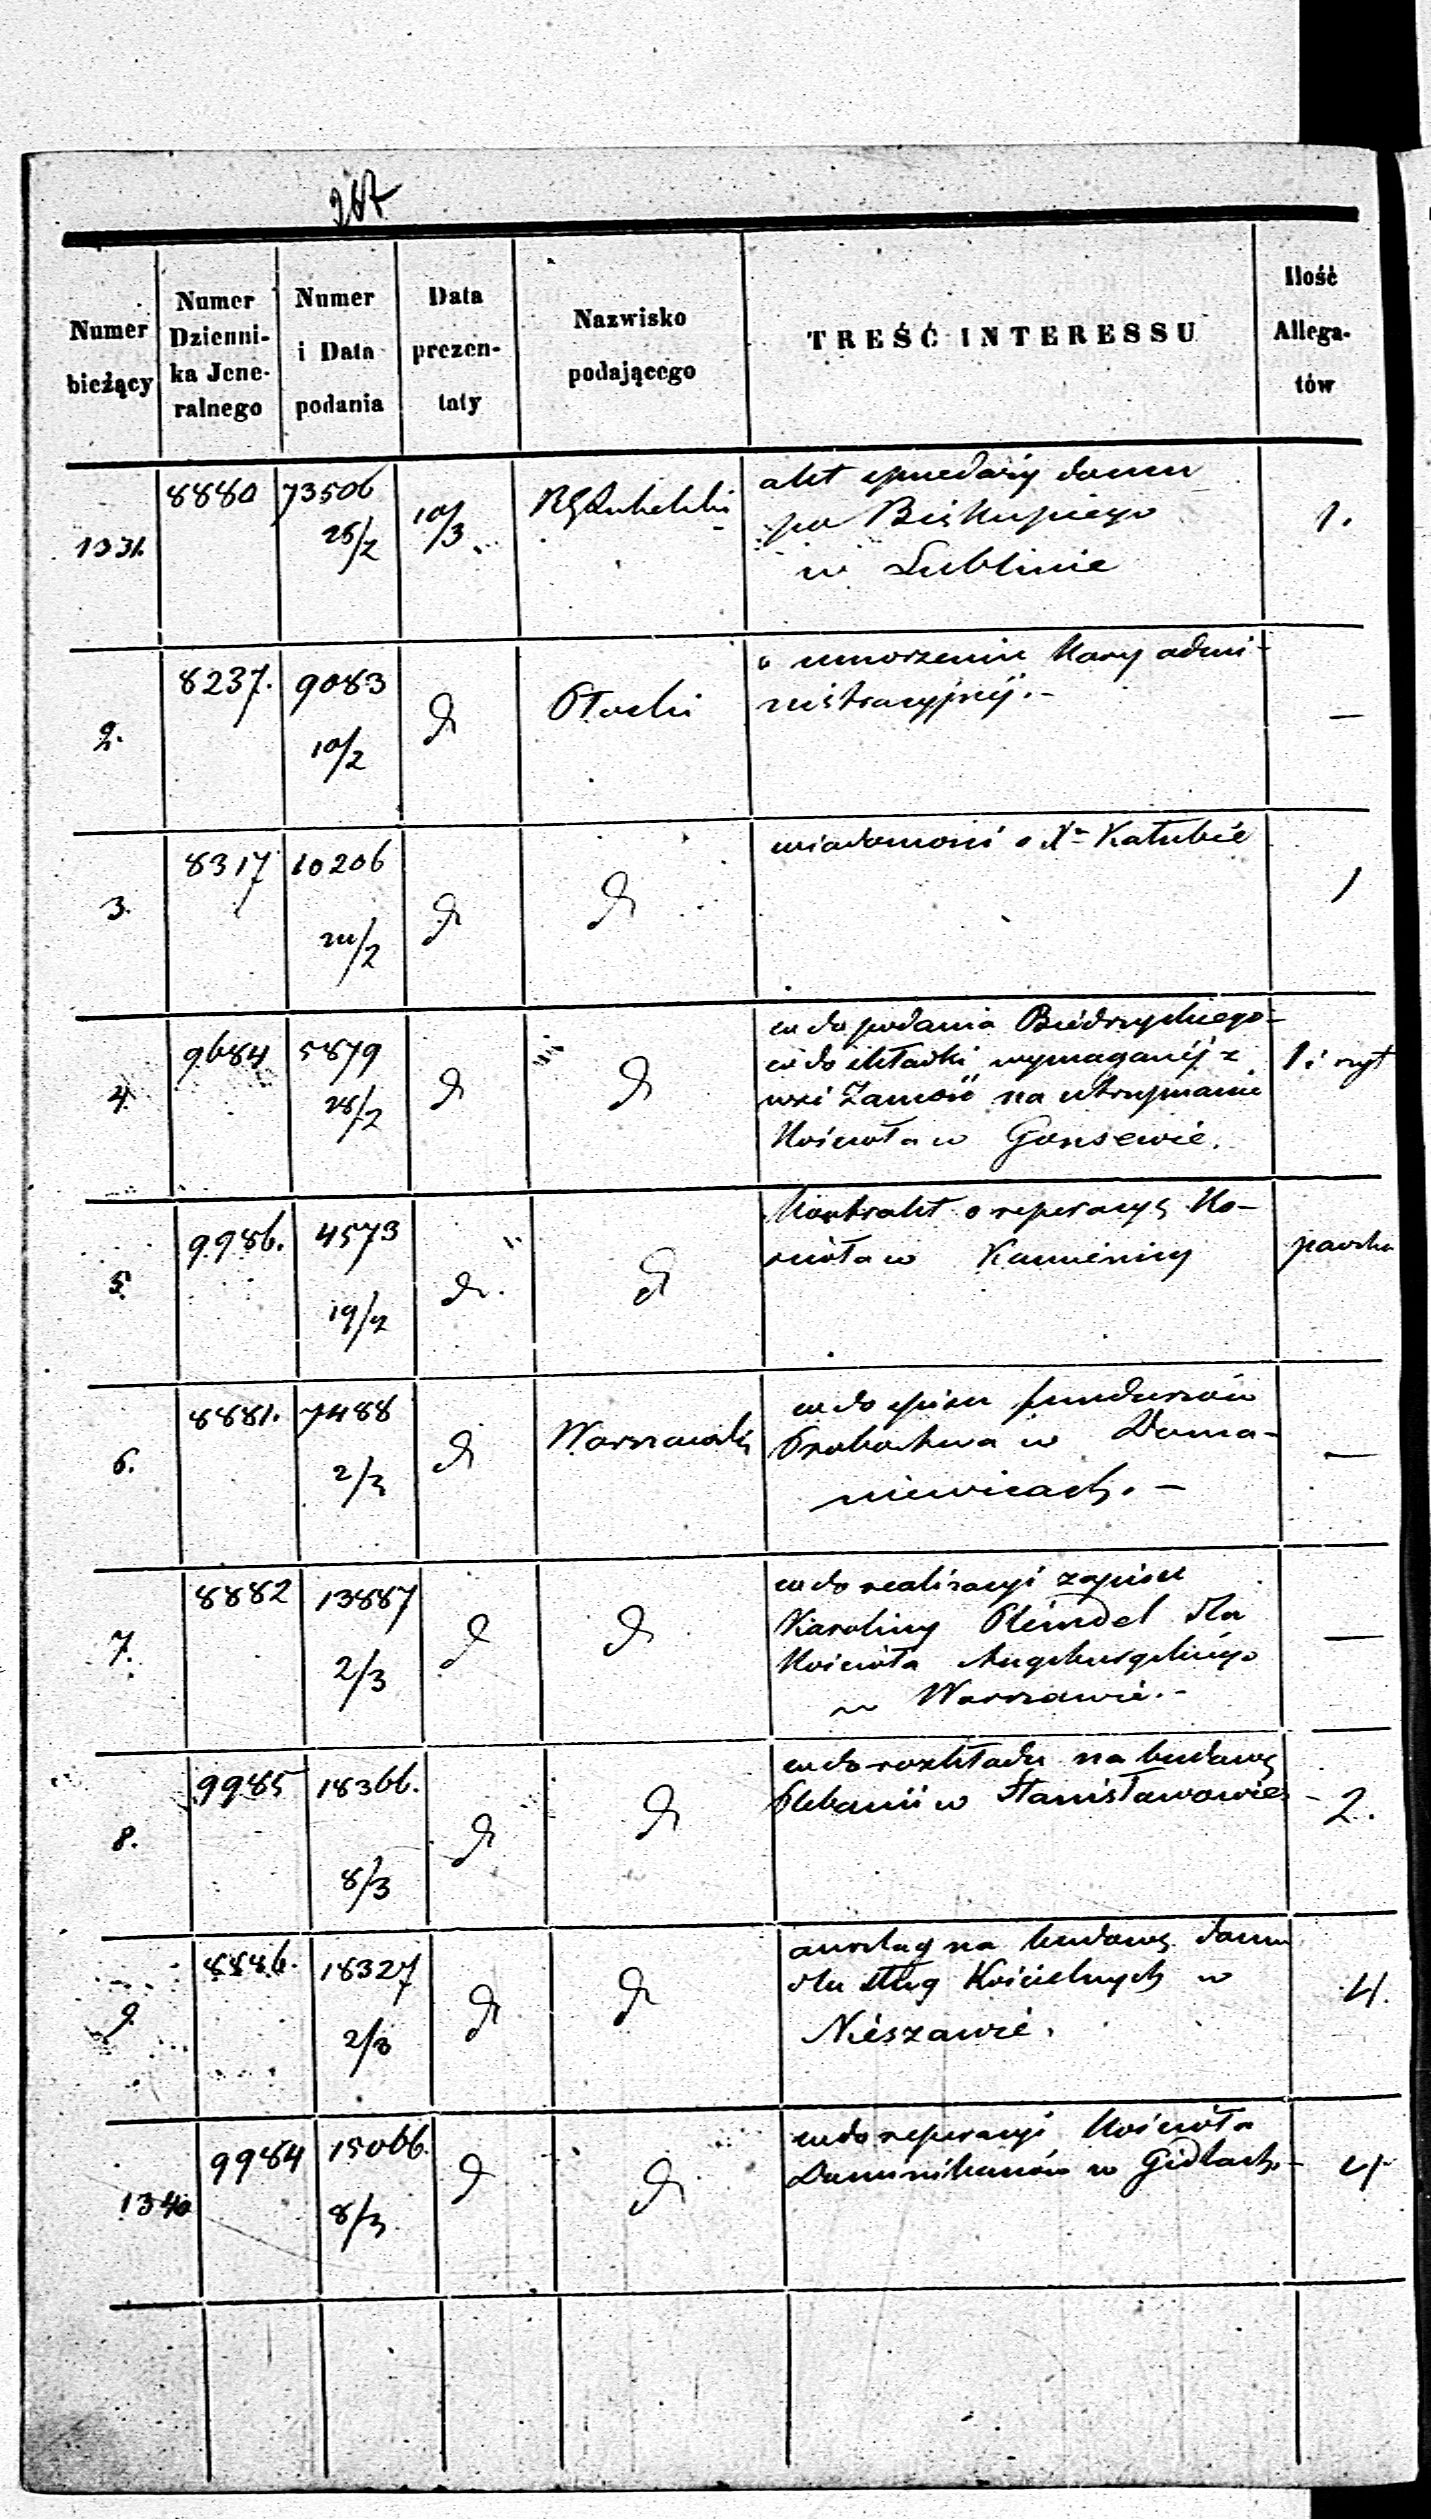 267
Numer bieżący
Numer Dzienni-ka Jene-ralnego
Numer i Data podania
Data prezen-taty
Nazwisko podającego
TREŚĆ INTERESSU
Ilość Allega-tów
1331. 8880 73506 25/2 10/3 RGLubelski 1.
akt sprzedaży domu
po Biskupiego
w Lublinie
2. 8237. 9083 10/2 d Płocki —
o umorzenie kary admi-
nistracyjnéj.-
3. 8317 10206 d d 1
wiadomość o X Kałubie
4. 9684 5879 28/2 d d 1 i
co do podania Biedrzyckiego
co do składki wymaganéj z
wsi Zamość na utrzymanie
Kościoła w Gonsewie.
5. 9986. 4573 19/2 d. d paczka
Kontrakt o reperacyę Ko-
ścioła w Kamienicy
6. 8881. 7488 2/3 d Warszawski —
co do spisu funduszów
Probostwa w Doma-
niewicach.-
7. 8882 13887 2/3 d d —
co do realizacyi zapisu
Karoliny dla
Kościoła Augsburgskiego
w Warszawie.-
8. 9985 18366. 8/3 d d 2.
co do rozkładu na budowę
Plebanii w Stanisławowie -
9. 8886. 18327 2/3 d d 4.
anszlag na budowę domu
dla sług Kościelnych w
Nieszawie.
1340 9984 15066. 8/3 d d 4
co do reperacyi Kościoła
Dominikanów w Gidlach-